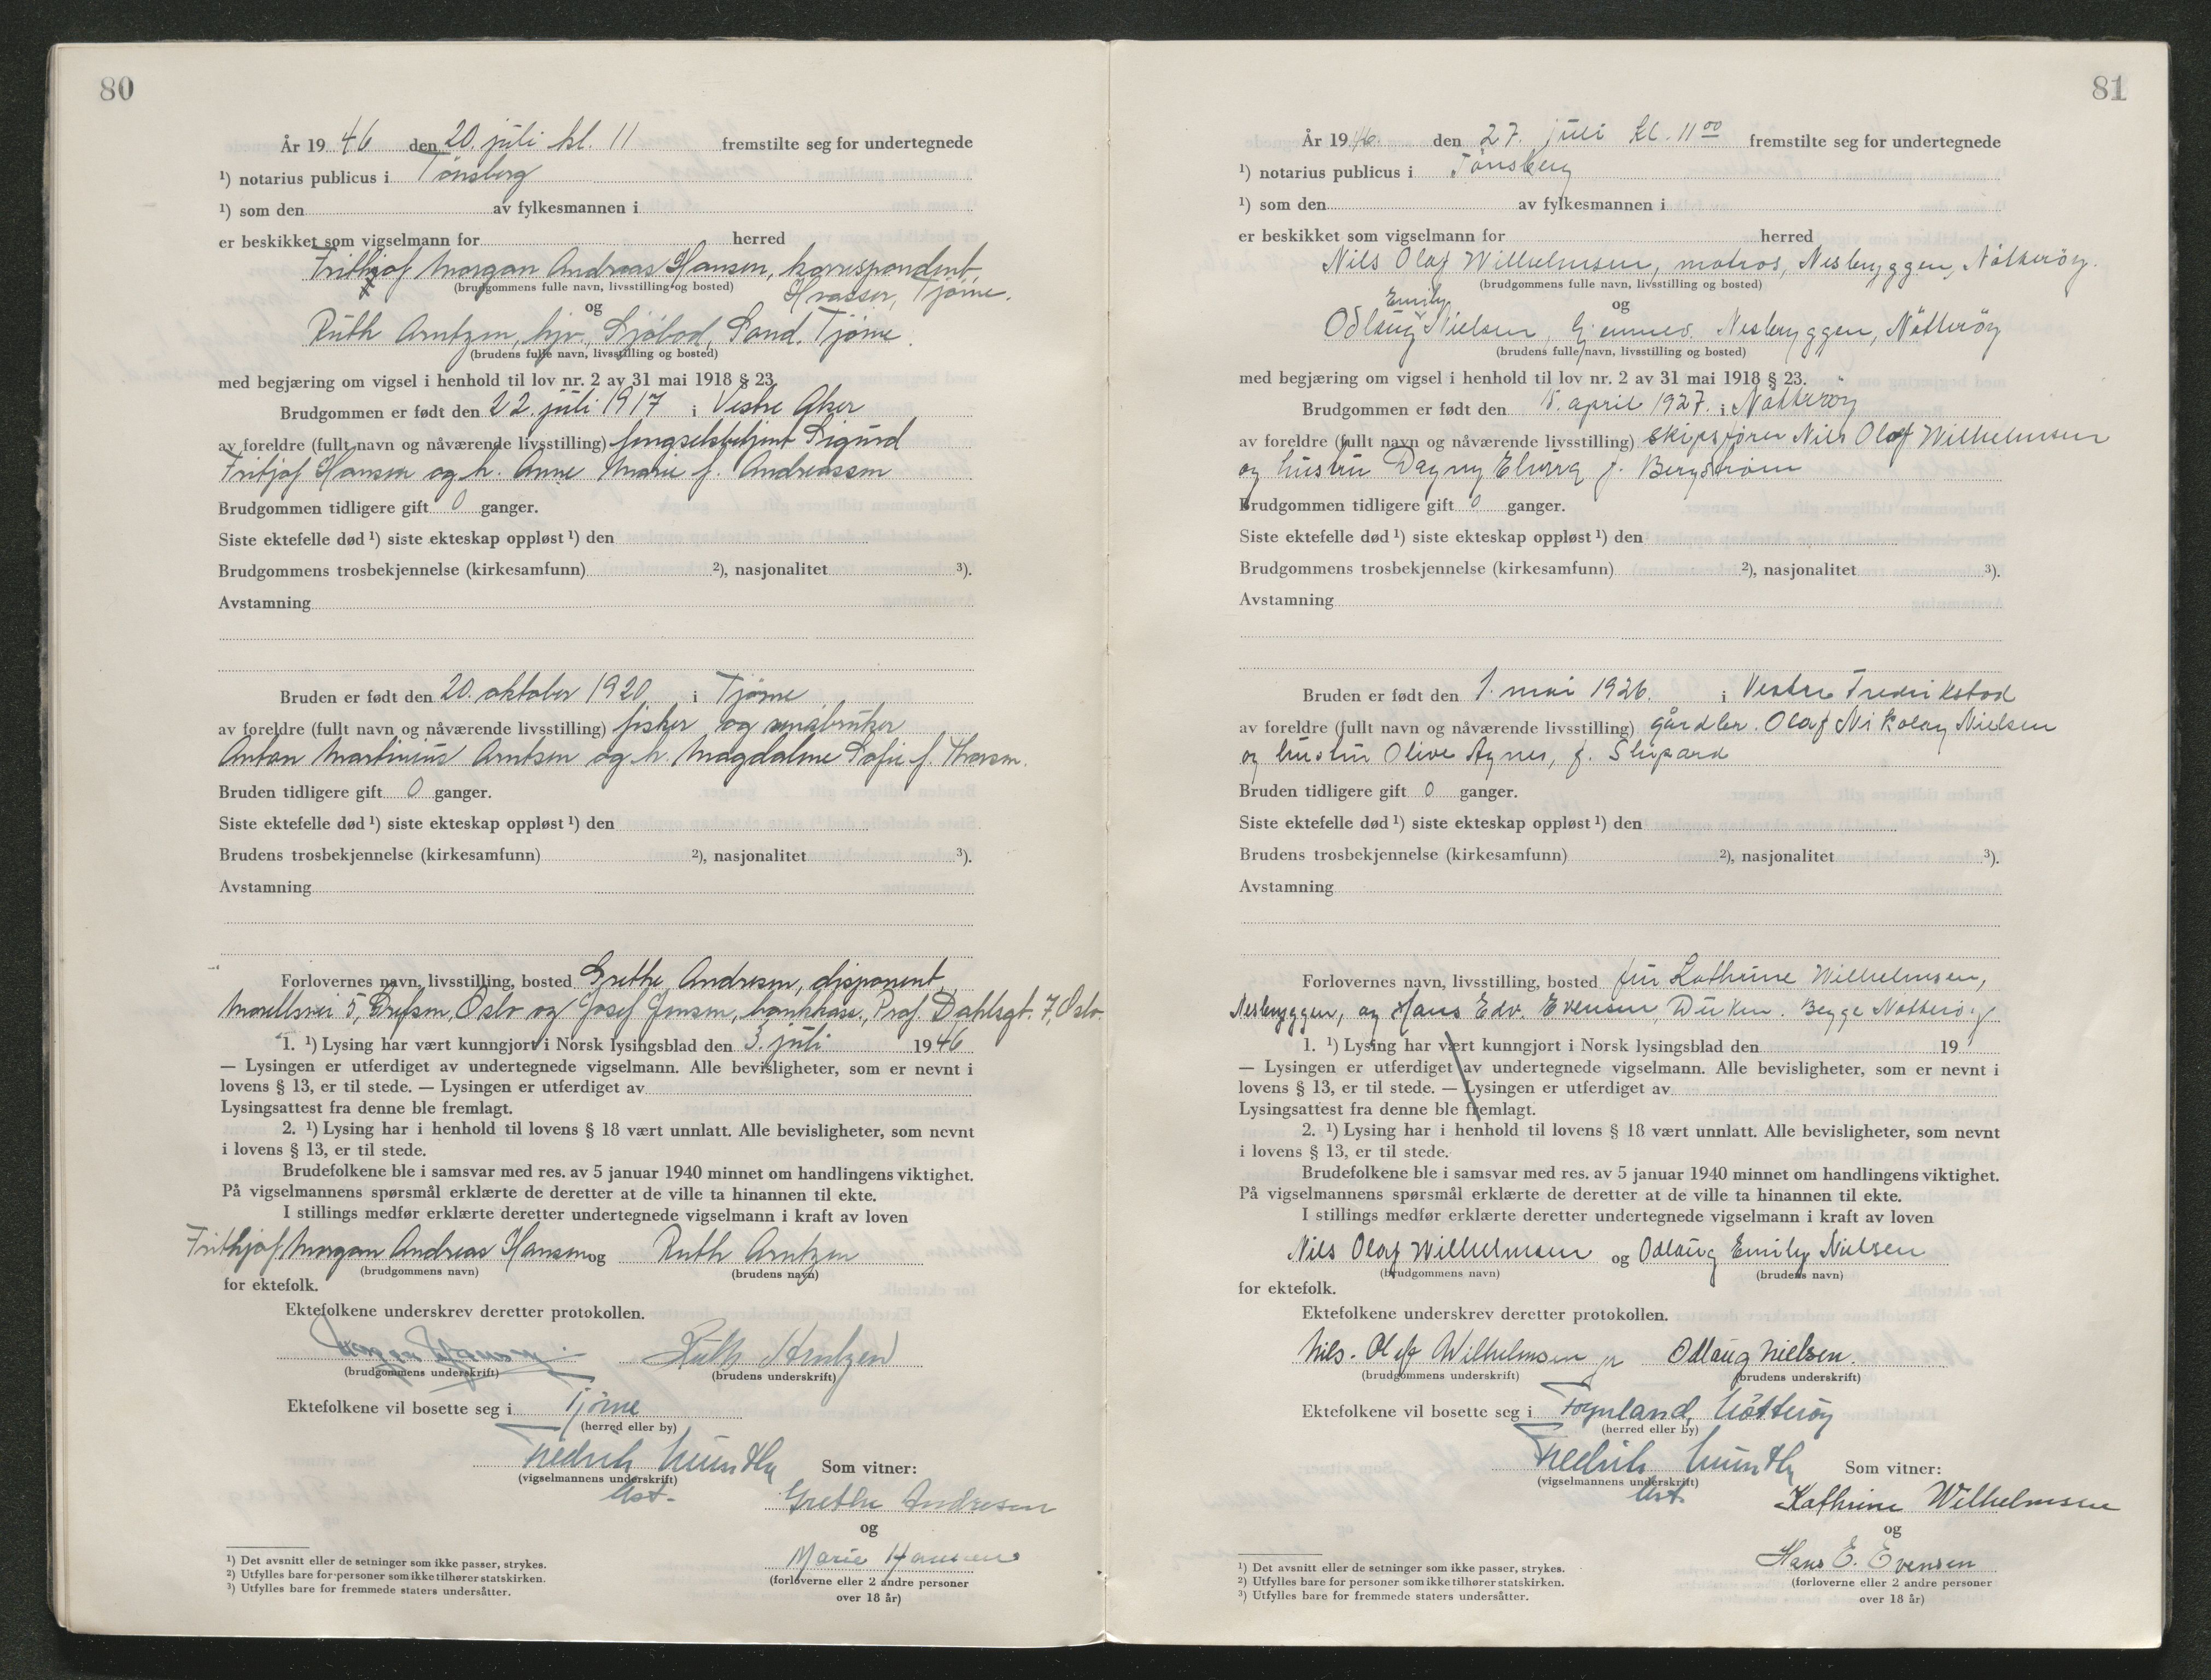 80
År 1946 den 20. juli kl. 11 fremstilte seg for undertegnede
¹) notarius publicus i Tønsberg
¹) som den av fylkesmannen i
er beskikket som vigselmann for herred
Frithjof Morgan Andreas Hansen, korrespondent,
(brudgommens fulle navn, livsstilling og bosted) Hvasser, Tjøme.
og
Ruth Arntzen, hjv., Sjøbod, Sand. Tjøme.
(brudens fulle navn, livsstilling og bosted)
med begjæring om vigsel i henhold til lov nr. 2 av 31 mai 1918 § 23.
Brudgommen er født den 22. juli 1917 i Vestre Aker
av foreldre (fullt navn og nåværende livsstilling) fengselsbetjent Sigurd
Fritjof Hansen og h. Anne Marie f. Andreassen
Brudgommen tidligere gift 0 ganger.
Siste ektefelle død ¹) siste ekteskap oppløst ¹) den
Brudgommens trosbekjennelse (kirkesamfunn) ²), nasjonalitet ³).
Avstamning
Bruden er født den 20. oktober 1920 i Tjøme
av foreldre (fullt navn og nåværende livsstilling) fisker og småbruker
Anton Martinius Arntsen og h. Magdalene Sofie f. Thorsen.
Bruden tidligere gift 0 ganger.
Siste ektefelle død ¹) siste ekteskap oppløst ¹) den
Brudens trosbekjennelse (kirkesamfunn) ²), nasjonalitet ³).
Avstamning
Forlovernes navn, livsstilling, bosted Grethe Andresen, disponent,
Morellsvei 5, Grefsen, Oslo og Josef Jensen, bankkass., Prof. Dahlsgt. 7, Oslo.
1. ¹) Lysing har vært kunngjort i Norsk lysingsblad den 3. juli 1946
— Lysingen er utferdiget av undertegnede vigselmann. Alle bevisligheter, som er nevnt i
lovens § 13, er til stede. — Lysingen er utferdiget av
Lysingsattest fra denne ble fremlagt.
2. ¹) Lysing har i henhold til lovens § 18 vært unnlatt. Alle bevisligheter, som nevnt
i lovens § 13, er til stede.
Brudefolkene ble i samsvar med res. av 5 januar 1940 minnet om handlingens viktighet.
På vigselmannens spørsmål erklærte de deretter at de ville ta hinannen til ekte.
I stillings medfør erklærte deretter undertegnede vigselmann i kraft av loven
Frithjof Morgan Andreas Hansen og Ruth Arntzen
(brudgommens navn) (brudens navn)
for ektefolk.
Ektefolkene underskrev deretter protokollen.
Morgan Hansen. Ruth Arntzen
(brudgommens underskrift) (brudens underskrift)
Ektefolkene vil bosette seg i Tjøme
(herred eller by)
Fredrik
(vigselmannens underskrift) Som vitner:
Grethe Andresen
og
Marie Hansen
(forloverne eller 2 andre personer
over 18 år)
¹) Det avsnitt eller de setninger som ikke passer, strykes.
²) Utfylles bare for personer som ikke tilhører statskirken.
³) Utfylles bare for fremmede staters undersåtter.
81
År 1946. den 27. juli kl. 11⁰⁰ fremstilte seg for undertegnede
¹) notarius publicus i Tønsberg
¹) som den av fylkesmannen i
er beskikket som vigselmann for herred
Nils Olaf Wilhelmsen, matros, Nesbryggen, Nøtterøy.
(brudgommens fulle navn, livsstilling og bosted)
og
Emily
Odlaug Nielsen, hj.emmev. Nesbryggen, Nøtterøy
(brudens fulle navn, livsstilling og bosted)
med begjæring om vigsel i henhold til lov nr. 2 av 31 mai 1918 § 23.
Brudgommen er født den april 1927. i Nøtterøy
av foreldre (fullt navn og nåværende livsstilling) skipsfører Nils Olaf Wilhelmsen
og hustru Dagny Elvira f. Bergstrøm
Brudgommen tidligere gift 0 ganger.
Siste ektefelle død ¹) siste ekteskap oppløst ¹) den
Brudgommens trosbekjennelse (kirkesamfunn) ²), nasjonalitet ³).
Avstamning
Bruden er født den 1. mai 1926. i Vestre Fredrikstad
av foreldre (fullt navn og nåværende livsstilling) gårdbr. Olaf Nikolay Nielsen
og hustru Olive Agnes, f. Shipard
Bruden tidligere gift 0 ganger.
Siste ektefelle død ¹) siste ekteskap oppløst ¹) den
Brudens trosbekjennelse (kirkesamfunn) ²), nasjonalitet ³).
Avstamning
Forlovernes navn, livsstilling, bosted fru Kathrine Wilhelmsen,
Nesbryggen, og Hans Edv. Evensen, Duken. Begge Nøtterøy
1. ¹) Lysing har vært kunngjort i Norsk lysingsblad den 19
— Lysingen er utferdiget av undertegnede vigselmann. Alle bevisligheter, som er nevnt i
lovens § 13, er til stede. — Lysingen er utferdiget av
Lysingsattest fra denne ble fremlagt.
2. ¹) Lysing har i henhold til lovens § 18 vært unnlatt. Alle bevisligheter, som nevnt
i lovens § 13, er til stede.
Brudefolkene ble i samsvar med res. av 5 januar 1940 minnet om handlingens viktighet.
På vigselmannens spørsmål erklærte de deretter at de ville ta hinannen til ekte.
I stillings medfør erklærte deretter undertegnede vigselmann i kraft av loven
Nils Olaf Wilhelmsen og Odlaug Emily Nielsen
(brudgommens navn) (brudens navn)
for ektefolk.
Ektefolkene underskrev deretter protokollen.
Nils. Olaf Wilhelmsen jr Odlaug Nielsen.
(brudgommens underskrift) (brudens underskrift)
Ektefolkene vil bosette seg i Føynland, Nøtterøy
(herred eller by)
Fredrik
(vigselmannens underskrift) Som vitner:
Kathrine Wilhelmsen
og
Hans E. Evensen
(forloverne eller 2 andre personer
over 18 år)
¹) Det avsnitt eller de setninger som ikke passer, strykes.
²) Utfylles bare for personer som ikke tilhører statskirken.
³) Utfylles bare for fremmede staters undersåtter.